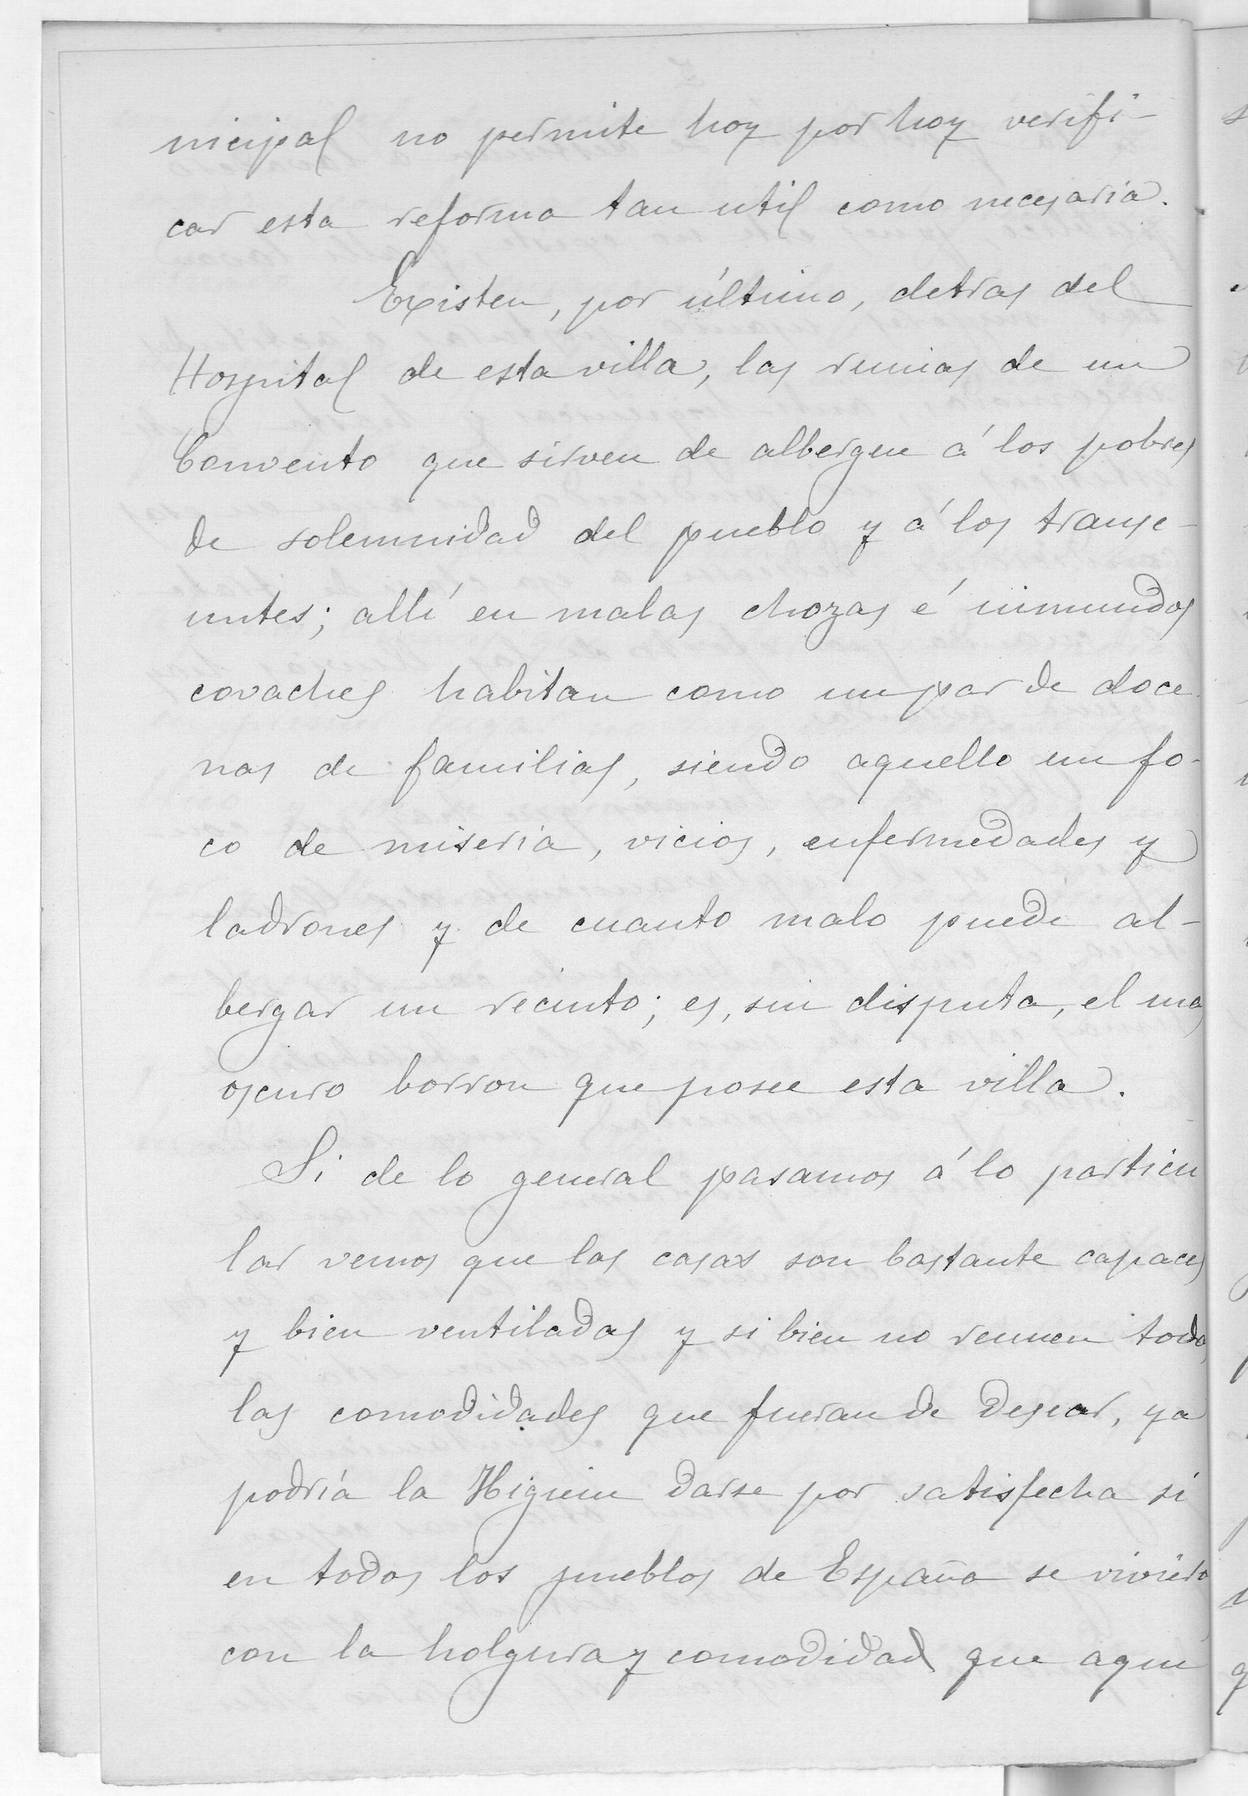 nicipal no permite hoy por hoy verifi-
car esta reforma tan util como necesaria.
Existen, por último, detras del
Hospital de esta villa, las ruinas de un
Convento que sirven de albergue á los pobres
de solemnidad del pueblo y á los transe-
untes; allí en malas chozas é inmundos
covaches habitan como un par de doce-
nas de familias, siendo aquello un fo-
co de miseria, vicios, enfermedades y
ladrones y de cuanto malo puede al-
bergar un recinto; es, sin disputa, el mas
oscuro borron que posee esta villa.
Si de lo general pasamos á lo particu
lar vemos que las casas son bastante capaces
y bien ventiladas y si bien no reunen todas
las comodidades que fueran de desear, ya
podría la Higiene darse por satisfecha si
en todos los pueblos de España se viviera
con la holgura y comodidad que aqui